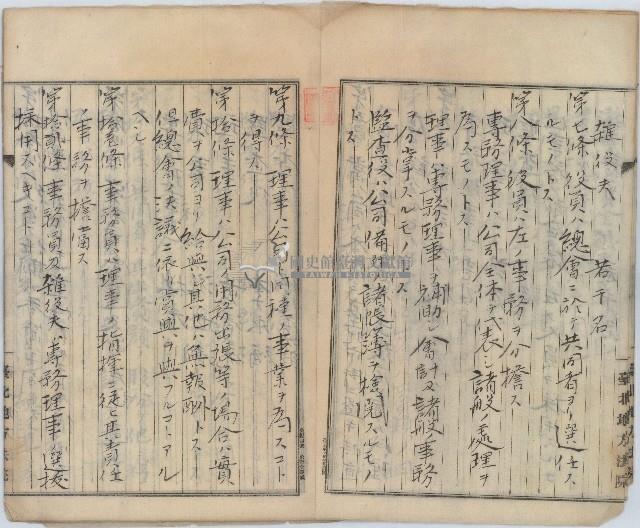 雑役夫　若干名
第七條　役員ハ總會ニ於テ共同者ヨリ選任ス
ルモノトス
第八條　役員ハ左ノ事務ヲ分擔ス
専務理事ハ公司全体ヲ代表シ諸般ノ処理ヲ
為スモノトス
理事ハ専務理事ヲ補助シ會計及諸般ノ事務
ヲ分掌スルモノトス
監査役ハ公司備付諸帳簿ヲ検閲スルモノ
トス
第九條　理事ハ公司ト同種ノ事業ヲ為スコト
ヲ得ス
第拾條　理事ハ公司ノ用務出張等ノ場合ハ實
費ヲ公司ヨリ給與シ其他ハ無報酬トス
但總會ノ決議ニ依リ賞與ヲ與フルコトアル
ヘシ
第拾壱條　事務員ハ理事ノ指揮ニ従ヒ其責任
ノ事務ヲ擔當ス
第拾貳條　事務員及雑役夫ハ専務理事ノ選擇
採用スヘキコト
臺北地方法院
臺北地方法院
國史館臺灣文獻館
TAIWAN HISTORICA